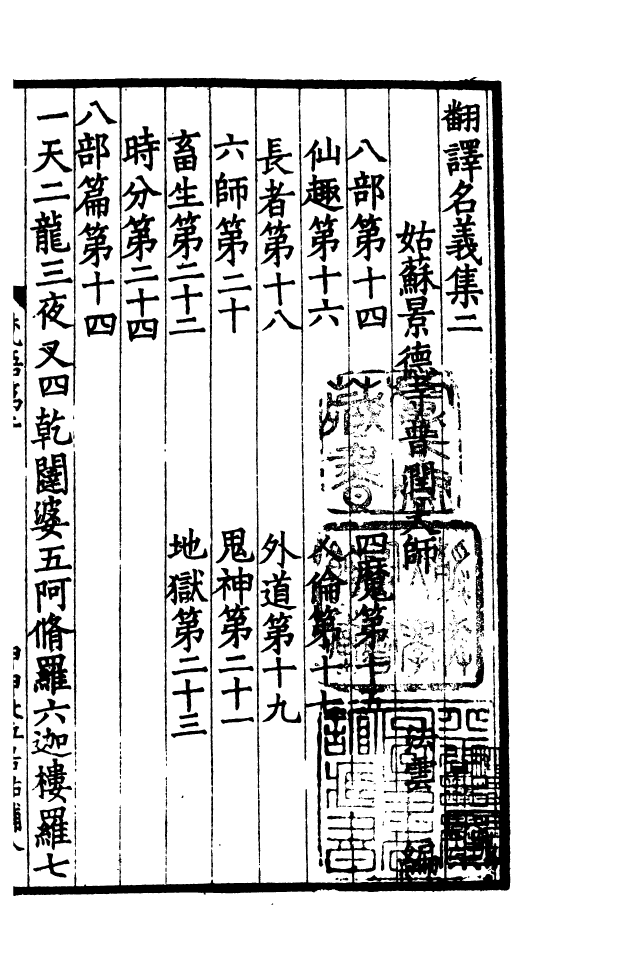 翻譯名義集二
姑蘇景德寺普潤大師 法雲 編
八部第十四 四魔第十五
仙趣第十六 人倫第十七
長者第十八 外道第十九
六師第二十 鬼神第二十一
畜生第二十二 地獄第二十三
時分第二十四
八部篇第十四
一天二龍三夜叉四乾闥婆五阿脩羅六迦樓羅七